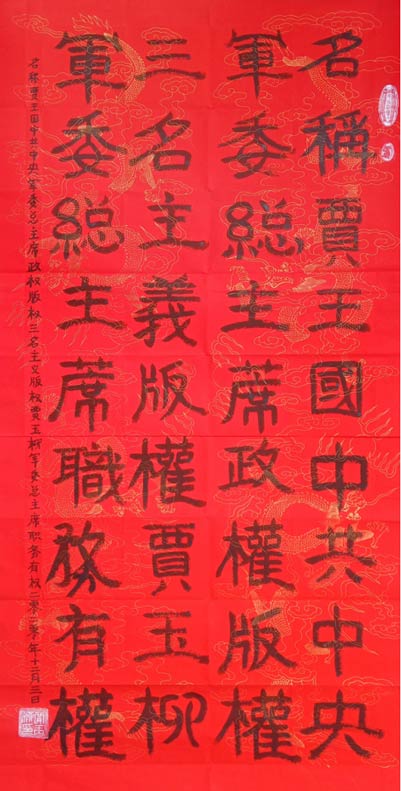 名稱賈王國中共中央
軍委総主蓆政權版權
三名主義版權賈玉柳
軍委総主蓆職務有權
名称贾王国中共中央军委总主席政权版权三名主义版权贾玉柳军委总主席职务有权二零二零年十二月三日